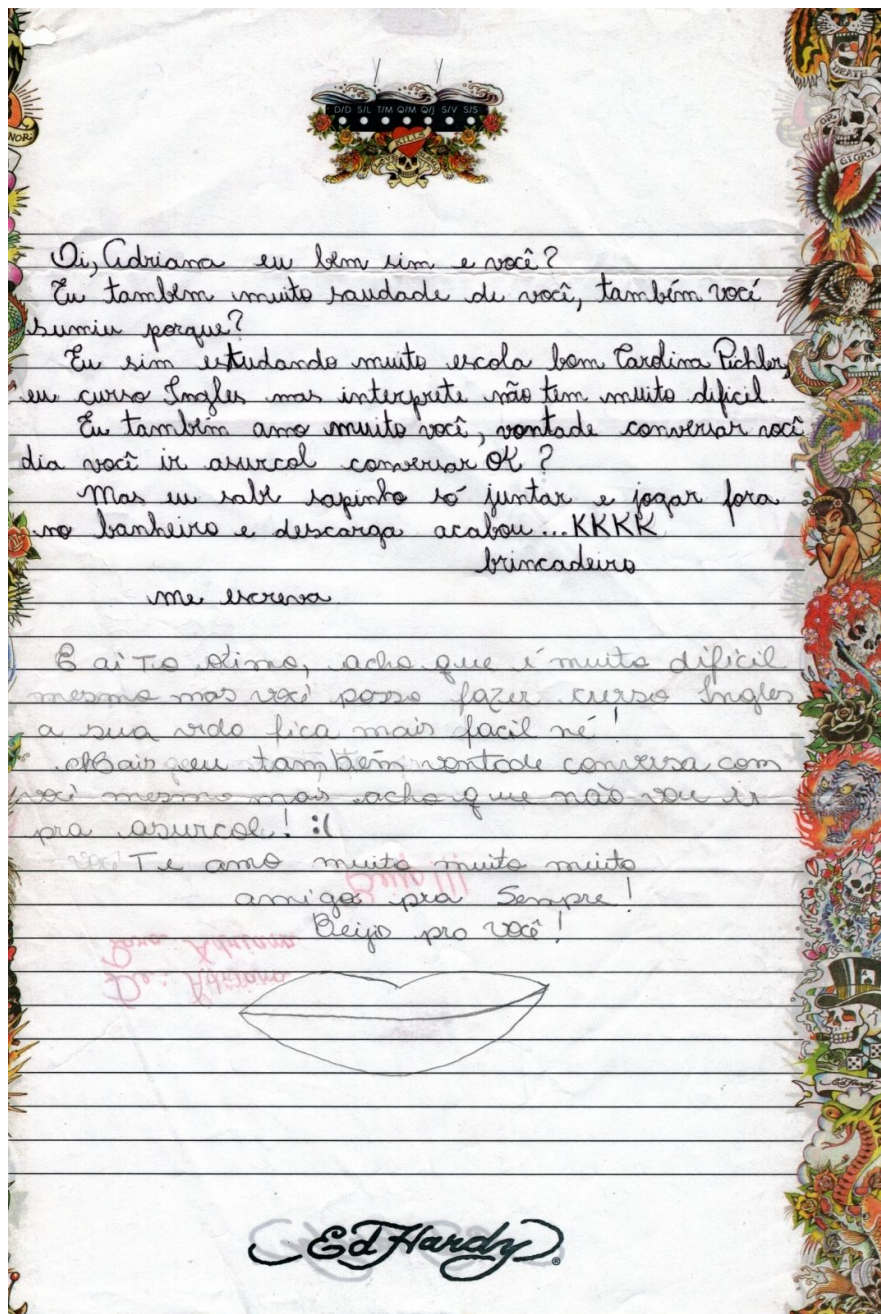 D/D S/L T/M Q/M Q/J S/V S/S
KILLS
Oi, Adriana eu bem sim e você?
Eu também muito saudade de você, também você
sumiu porque?
Eu sim estudando muito escola bom Cardina Pichler,
eu curso Ingles mas interprete não tem muito dificil.
Eu também amo muito você, vontade conversar você
dia você ir asurcol conversar OK ?
Mas eu sabe sapinho só juntar e jogar fora
no banheiro e descarga acabou...KKKK
brincadeiro
me escreva
E ai Tio Dimo, acho que é muito dificil
mesmo mas você posso fazer curso Ingles
a sua vida fica mais facil né!
Mais eu também vontade conversa com
você mesmo mas acho que não vou ir
pra asurcol! :(
Te amo muito muito muito
amigo pra Sempre!
Beijo pro você!
Para: Adriana
De: Adriano
DEATH
OR
GLORY
NOR
Ed Hardy
Ed Hardy